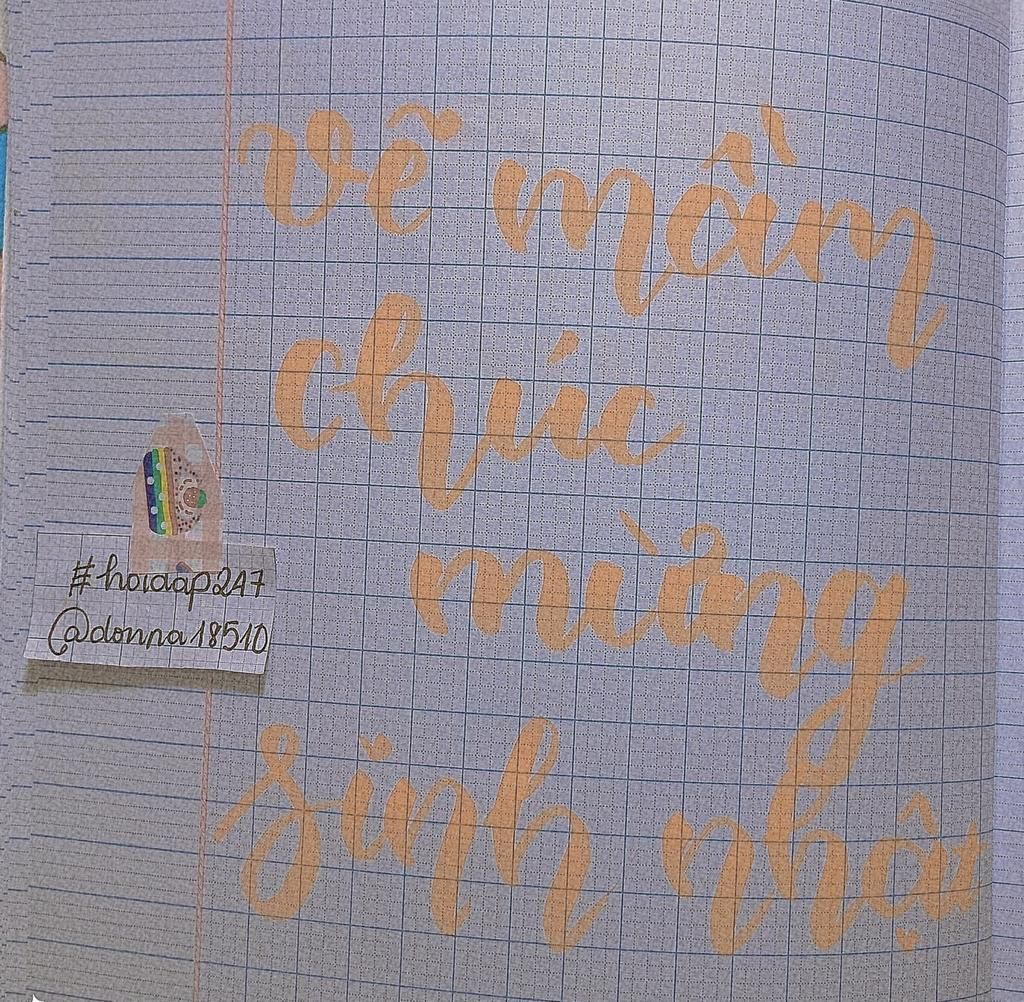 vẽ mầm
chúc
mừng
sinh nhật
#hoidap247
@donna18510